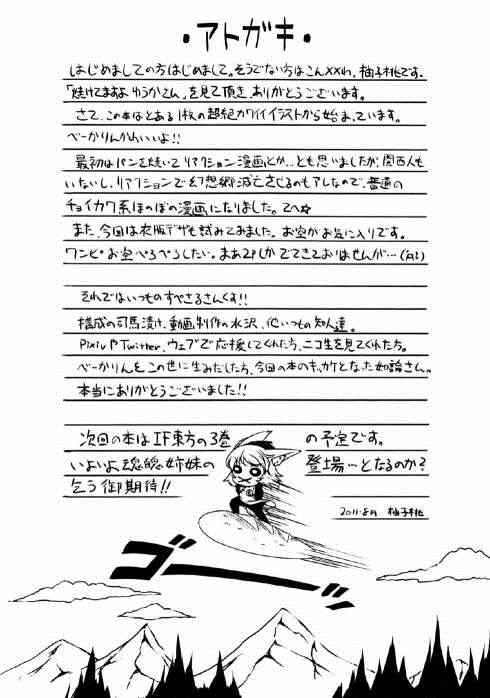 ・アトガキ・
はじめましての方はじめまして。そうでない方はこん××わ、柚子桃です。
「焼けてますよゆうかさん」を見て頂き、ありがとうございます。
さて、この本はとある1枚の超絶カワイイイラストから始まっています。
べーかりんかわいいよ!!
最初はパンを焼いてリアクション漫画とか…とも思いましたが、関西人も
いないし、リアクションで幻想郷滅亡させるのもアレなので、普通の
チョイカワ系ほのぼの漫画になりました。てへ☆
また、今回は衣服デザも試みてみました。お空がお気に入りです。
ワンピお空ぺろぺろしたい。まあ2Pしかでてきておりませんが…
それではいつものすぺさるさんくす!!
構成の司馬漬け、動画制作の水沢、他いつもの知人達。
PixivやTwitter、ウェブで応援してくれた方、ニコ生を見てくれた方。
べーかりんをこの世に生みだした方、今回の本のキッカケとなった如諭さん。
本当にありがとうございました!!
次回の本はIF東方の3巻の予定です。
いよいよ聡聡姉妹の登場…となるのか?
乞う御期待!!
2011.8月 柚子桃
ゴーッ